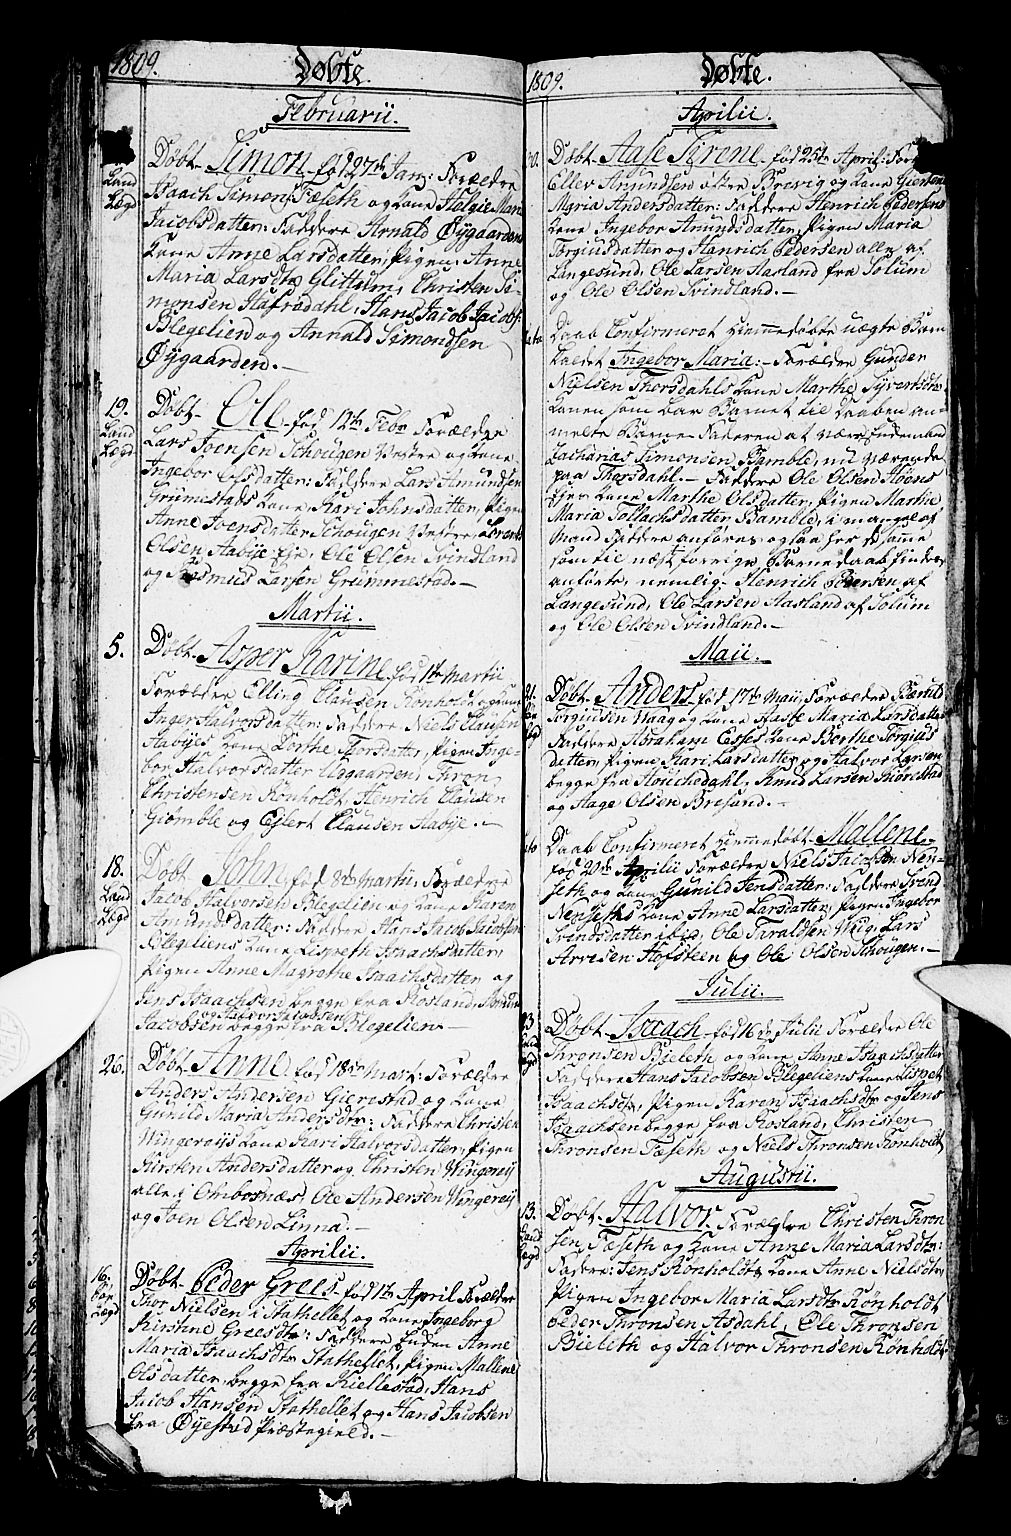 1809.
Døbte.
Februarii.
Land
Lægd
Døbt Simon. fød 27de Jan: Forældre
Isaach Simons: Fæseth og Kone Helgie Mari
Jacobsdatter: Faddere Arnald Øygaardens
Kone Anne Larsdatter, Pigen: Anne
Maria Larsdtr Glittum, Christen Si-
monsen Hafrædahl, Hans Jacob Jacobs:
Blegelien og Annald Simondsen
Øygaarden.
19.
Land
Lægd
Døbt Ole. fød 12te Febr Forældre
Lars Joensen Schougen Vestre og Kone
Ingebor Olsdatter: Faddere Lars Amundsen
Grumestads Kone, Kari Johnsdatter, Pigen
Anne Joensdatter Schougen Vestre,
Olsen Aabye Eje, Ole Olsen Svindland
og Rasmus Larsen Grummestad.
Martii.
5.
Døbt Asper Karine fød 1te Martii
Forældre Elling Clausen Rønholdt og Kone
Inger Halvorsdatter: Faddere Niels Clausen
Aabyes Kone Dorthe Thorsdatter, Pigen Inge-
bor Halvorsdatter Uegaarden, Thron
Christensen Rønholdt, Henrich Clausen
Giømble og Ejlert Clausen Aabye.
18.
Land
Lægd
Døbt John fød 8de Martii, Forældre
Jacob Halvorsen Blegelien og Kone Karen
Amundsdatter: Faddere Hans Jacob Jacobsen
Blegeliens Kone Lispeth Isaachsdatter,
Pigen Anne Magrethe Isaachsdatter og
Jens Isaachsen, begge fra Rosland,
og Halvor Jacobsen
Jacobsen begge fra Blegelien.
26.
Døbt Anne fød 18de Mart: Forældre
Anders Andersen Gierestad og Kone
Gunild Maria Andersdtr: Faddere Christen
Wingereis Kone Kari Halvorsdatter, Pigen
Kirsten Andersdatter og Christen Wingereij
alle i Ombosnæs, Ole Andersen Wingereij
og Joen Olsen Linna.
Aprilii.
16.
Lægd
Døbt Peder Grees. fød 1te April Forældre
Thor Nielsen i Stathellet og Kone Ingeborg
Kirstine Greesdtr: Faddere Enken Anne
Maria Isaachsdtr Stathellet, Pigen Mallene
Olsdatter, begge fra Kiellestad, Hans
Jacob Hansen Stathellet og Hans Jacobsen
fra Øyestad Præstegield.
1809.
Døbte.
Aprilii.
30.
Døbt Aase Sirene fød 25de April: For
Ellev Amundsen østre Brevig og Kone
Maria Andersdatter: Faddere Henrich Pedersens
Kone Ingebor Amundsdatter, Pigen Maria
Torgiusdatter og Hanrich Pedersen alle af
Langesund, Ole Larsen Aasland fra Solum
og Ole Olsen Svindland.
dito
Daab Confirmeret hiemmedøbte uægte Barn
kaldet Ingebor Maria: Forældre Gunder
Nielsen Thorsdahls Kone Marthe Syvertsdtr
Konen som bar Barnet til Daaben an-
meldte Barne-Faderen at være Enkemand
Zacharias Simonsen Bamble, nu værende
paa Thorsdahl. Faddere Ole Olsen Høens
Ejes Kone Marthe Olsdatter, Pigen Marthe
Maria Tollachsdatter Bamble, i mangel af
Mand Faddere anføres ogsaa her de samme
som til næst forrige Barnedaab findes
anførte, nemlig: Henrich Pedersen af
Langesund, Ole Larsen Aasland af Solum
og Ole Olsen Svindland.
Maii.
21.
Døbt Anders. fød 17de Maii, Forældre
Torgiusen Waag og Kone Maria Larsdatter
Faddere Abraham Esses Kone Berthe Torgius
datter, Pigen Kari Larsdatter og Halvor Larsen
begge fra Knud Larsen
og Aage Olsen Bresund.
dito
Daab Confirmeret hiemmedøbt Mallene
fød 20de Aprilii Forældre Niels Jacobsen Nen-
seth og Kone Gunild Jensdatter: Faddere Svend
Nenseths Kone Anne Larsdatter, Pigen Ingebor
Svendsdatter ibid, Ole Tivaldsen Lars
Arvesen Hofsteen og Ole Olsen Schougen.
Julii.
23
Land
Lægd
Døbt Isaach fød 16 de Julii Forældre Ole
Thronsen Bieleth og Kone Anne Isaachsdatter
Faddere Hans Jacobsen Blegeliens Kone Lispet
Isaachsdtr, Pigen Karen Isaachsdtr og Jens
Isaachsen begge fra Rosland, Christen
Thronsen Fæseth og Niels Thronsen Rønholdt
Augustii.
13.
Land
Lægd
Døbt Halvor. Forældre Christen Thron
sen, Fæseth og Kone Anne Maria Larsdtr:
Faddere: Jens Rønholdts Kone Anne Nielsdtr,
Pigen Ingebor Maria Larsdtr Rønholdt
Peder Thronsen Asdahl, Ole Thronsen
Bieleth og Halvor Thronsen Rønholdt